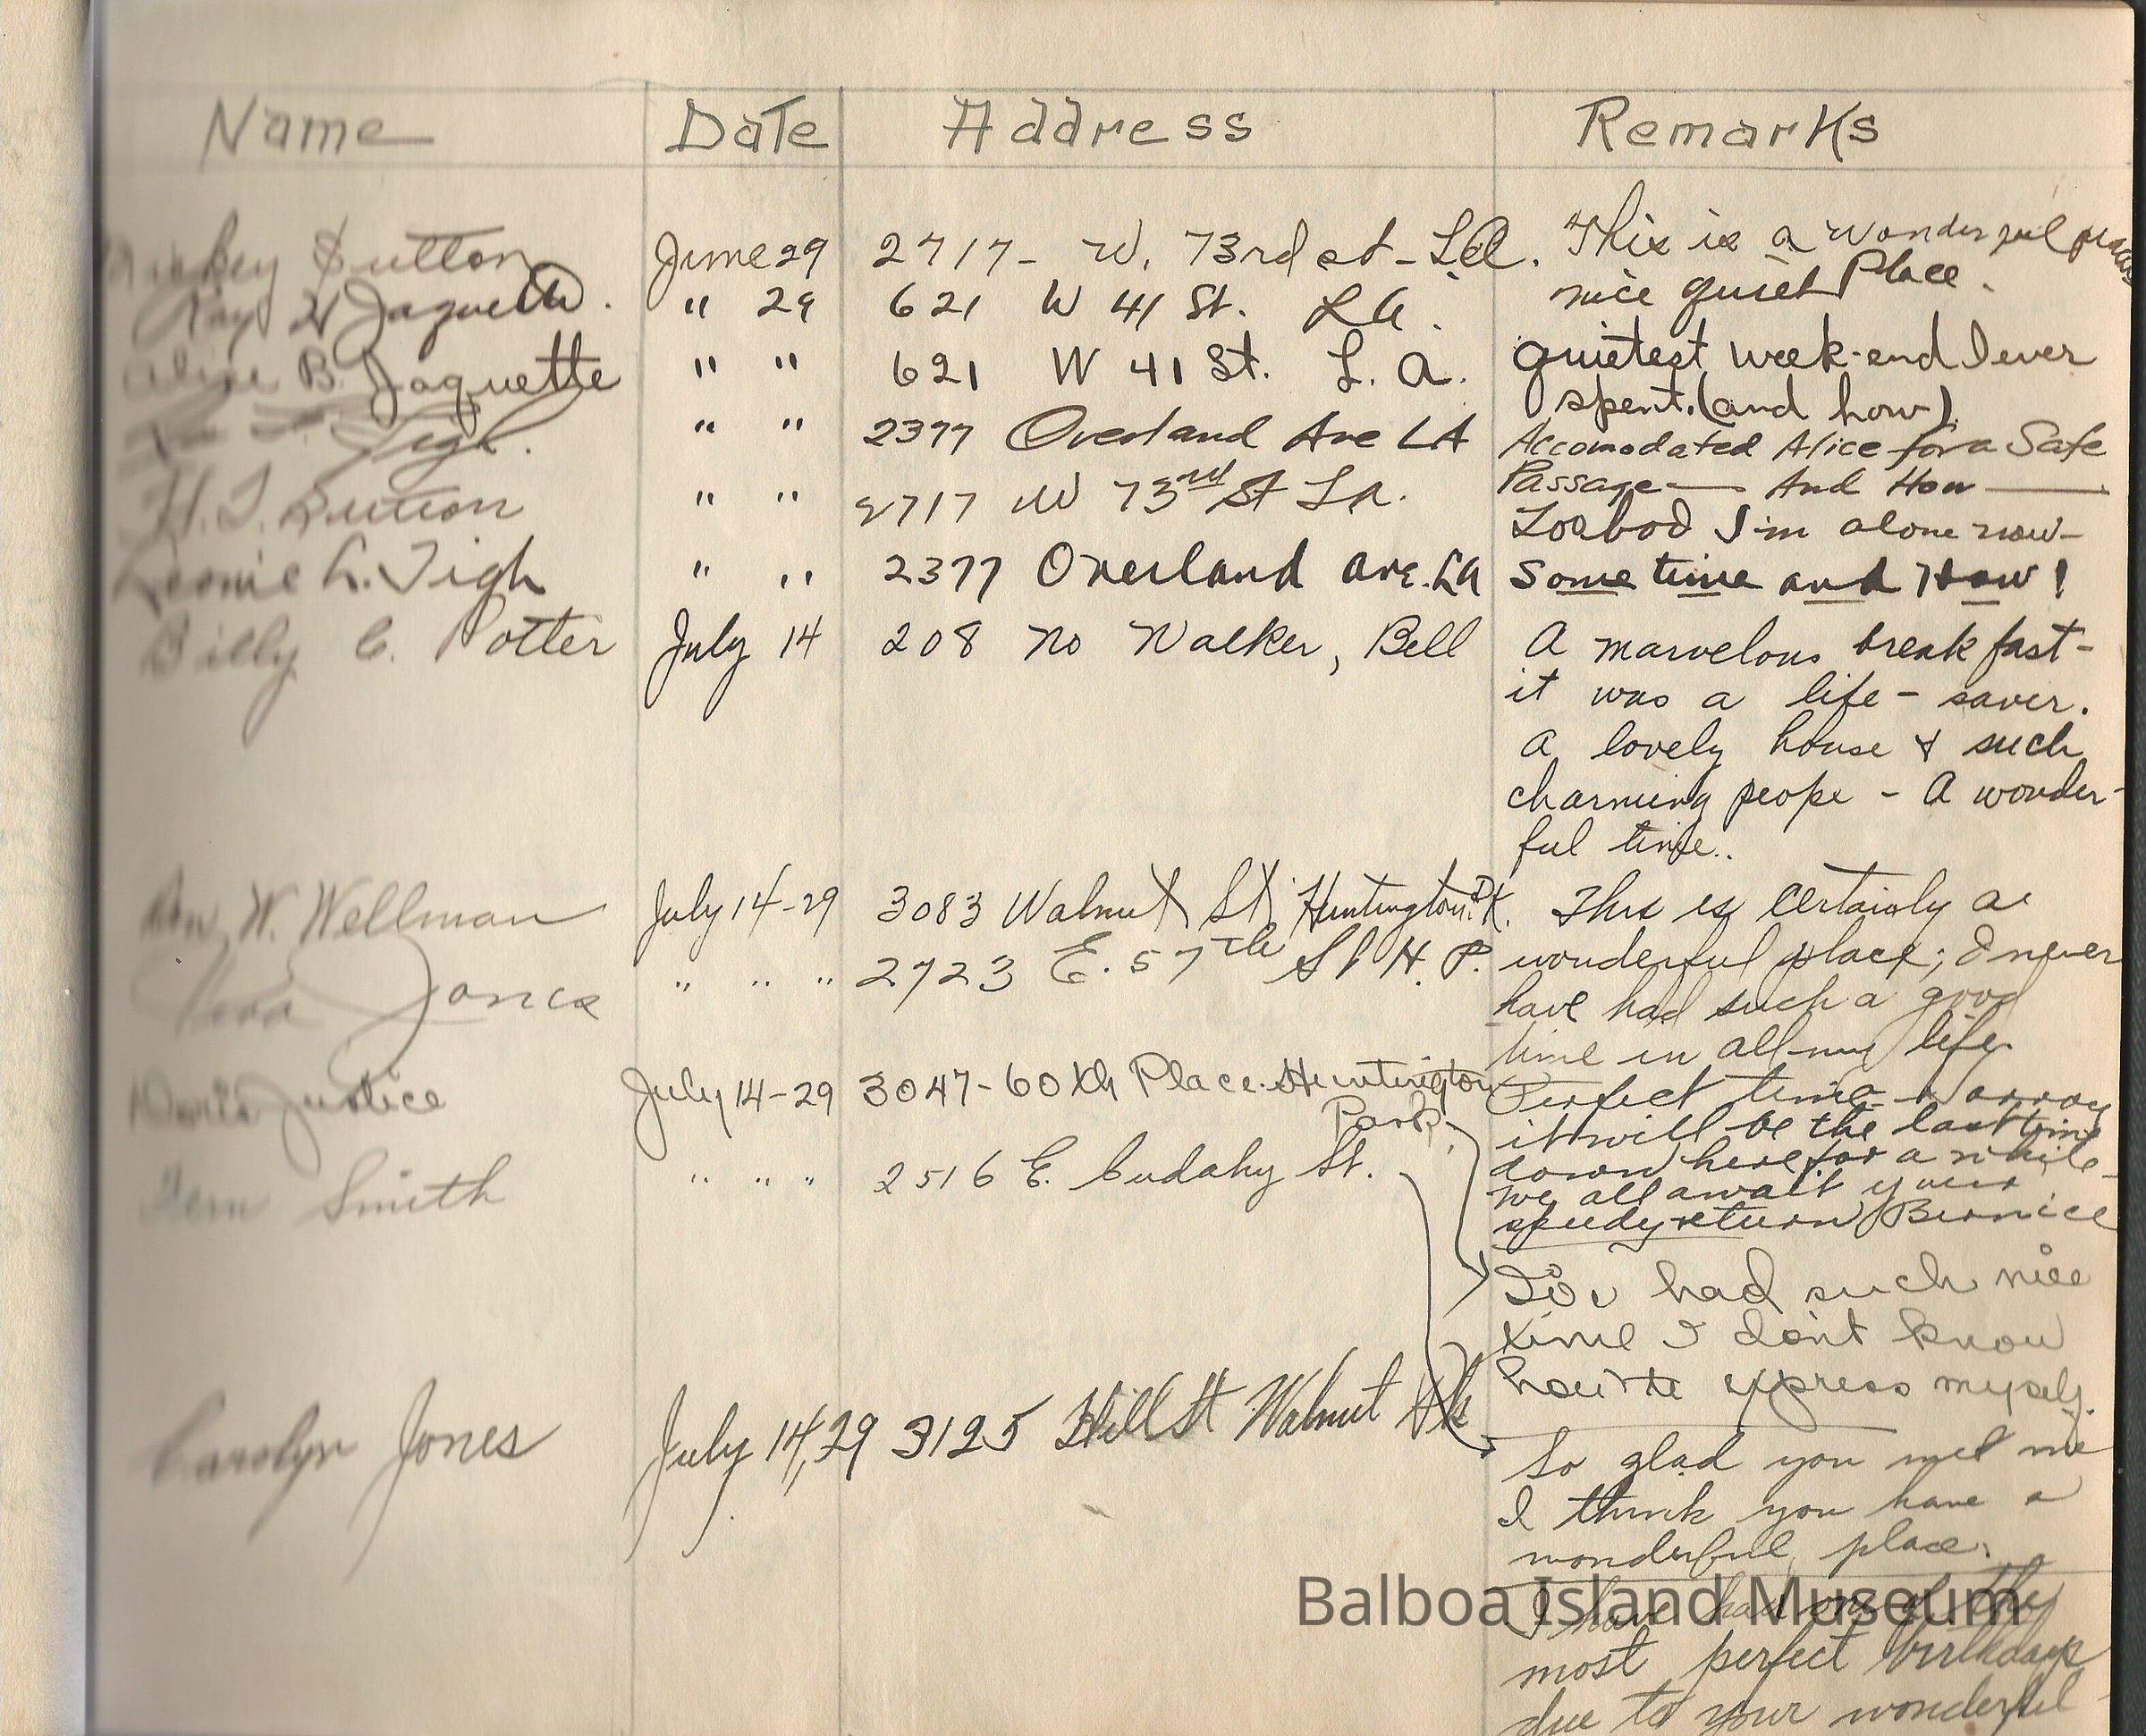 Name Date Address Remarks
Mickey Sutton June 29 2717 - W. 73rd st - LA. This is a wonderful
nice quiet Place.
Ray H Jaquette. " 29 621 W 41 St. LA.
Alice B. Jaquette " " 621 W 41 St. L. A. Quietest week-end I ever
spent. (and how)
Tigh. " " 2377 Overland Ave LA Accomodated Alice for a Safe
Passage — And How —
H. J. Sutton " " 2717 W 73rd St La. I'm alone now -
Leonie L. Tigh " " 2377 Overland ave. LA Some time and How!
Billy C. Potter July 14 208 No Walker, Bell A marvelous breakfast -
it was a life - saver.
A lovely house & such
charming peope - A wonder-
ful time..
W. Wellman July 14-29 3083 Walnut St. Huntington Pk. This is certainly a
wonderful place; I never
have had such a good
time in all my life
Jones " " " 2723 E. 57th St H. P.
Doris Justice July 14-29 3047-60th Place Huntington
Park
Perfect time
it will be the last time
down here for a while -
we all await your
speedy return Bernice
Fern Smith " " " 2516 E. Cudahy St.
I've had such nice
time I don't know
how to express myself.
Carolyn Jones July 14, 29 3125 Hill St Walnut Pk
So glad you met me
I think you have a
wonderful place.
I have had one of the
most perfect birthdays
due to your wonderful
Balboa Island Museum